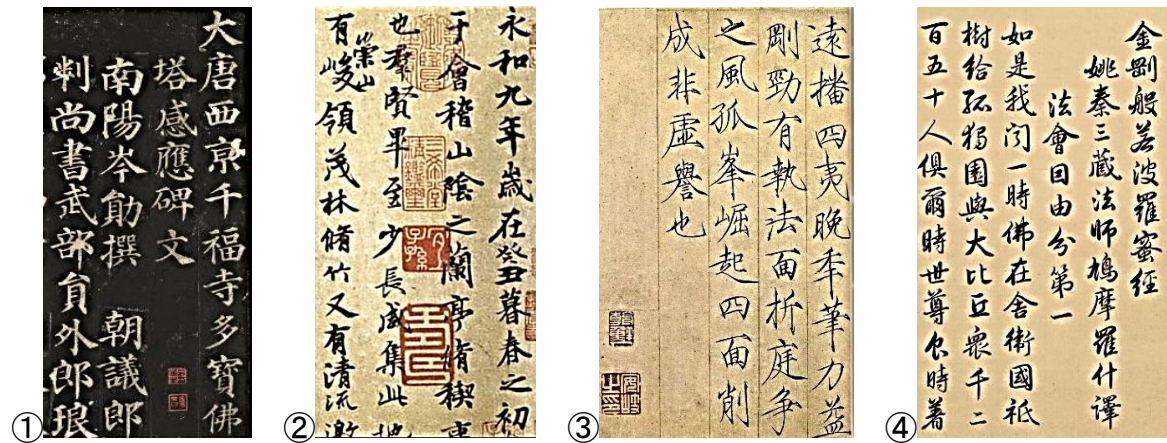 ①
大唐西京千福寺多寶佛
塔感應碑文
南陽岑勛撰 朝議郎
判尚書武部員外郎琅
②
永和九年歲在癸丑暮春之初
于會稽山陰之蘭亭脩稧事
也羣賢畢至少長咸集此地
有崇山峻領茂林脩竹又有清流激
③
遠播四夷晚秊筆力益
剛勁有執法面折庭爭
之風孤峯崛起四面削
成非虛譽也
④
金剛般若波羅蜜經
姚秦三藏法師鳩摩羅什譯
法會因由分第一
如是我聞一時佛在舍衛國祇
樹給孤獨園與大比丘眾千二
百五十人俱爾時世尊食時著